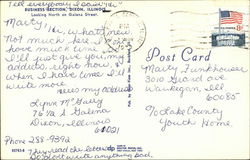 Tell everybody I said "Hi"
BUSINESS SECTION, DIXON, ILLINOIS
Looking North on Galena Street.
Marty,
Hi, what's new
Not much here. I don't
have much time.
I'll just give you my
address right now &
when I have time I'll
write more
Here's my address
Lynn McGaffey
76 1/2 S Galena
Dixon, Illinois
61021
Phone 288-9392
They read the letters
So don't write anything bad.
Post Card
Marty Funkhouser
3010 Grand ave
Waukegan, Ill
60085
% Lake County
Youth Home